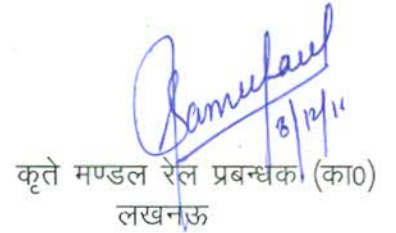 8/12/11
कृते मण्डल रेल प्रबन्धक (का0)
लखनऊ